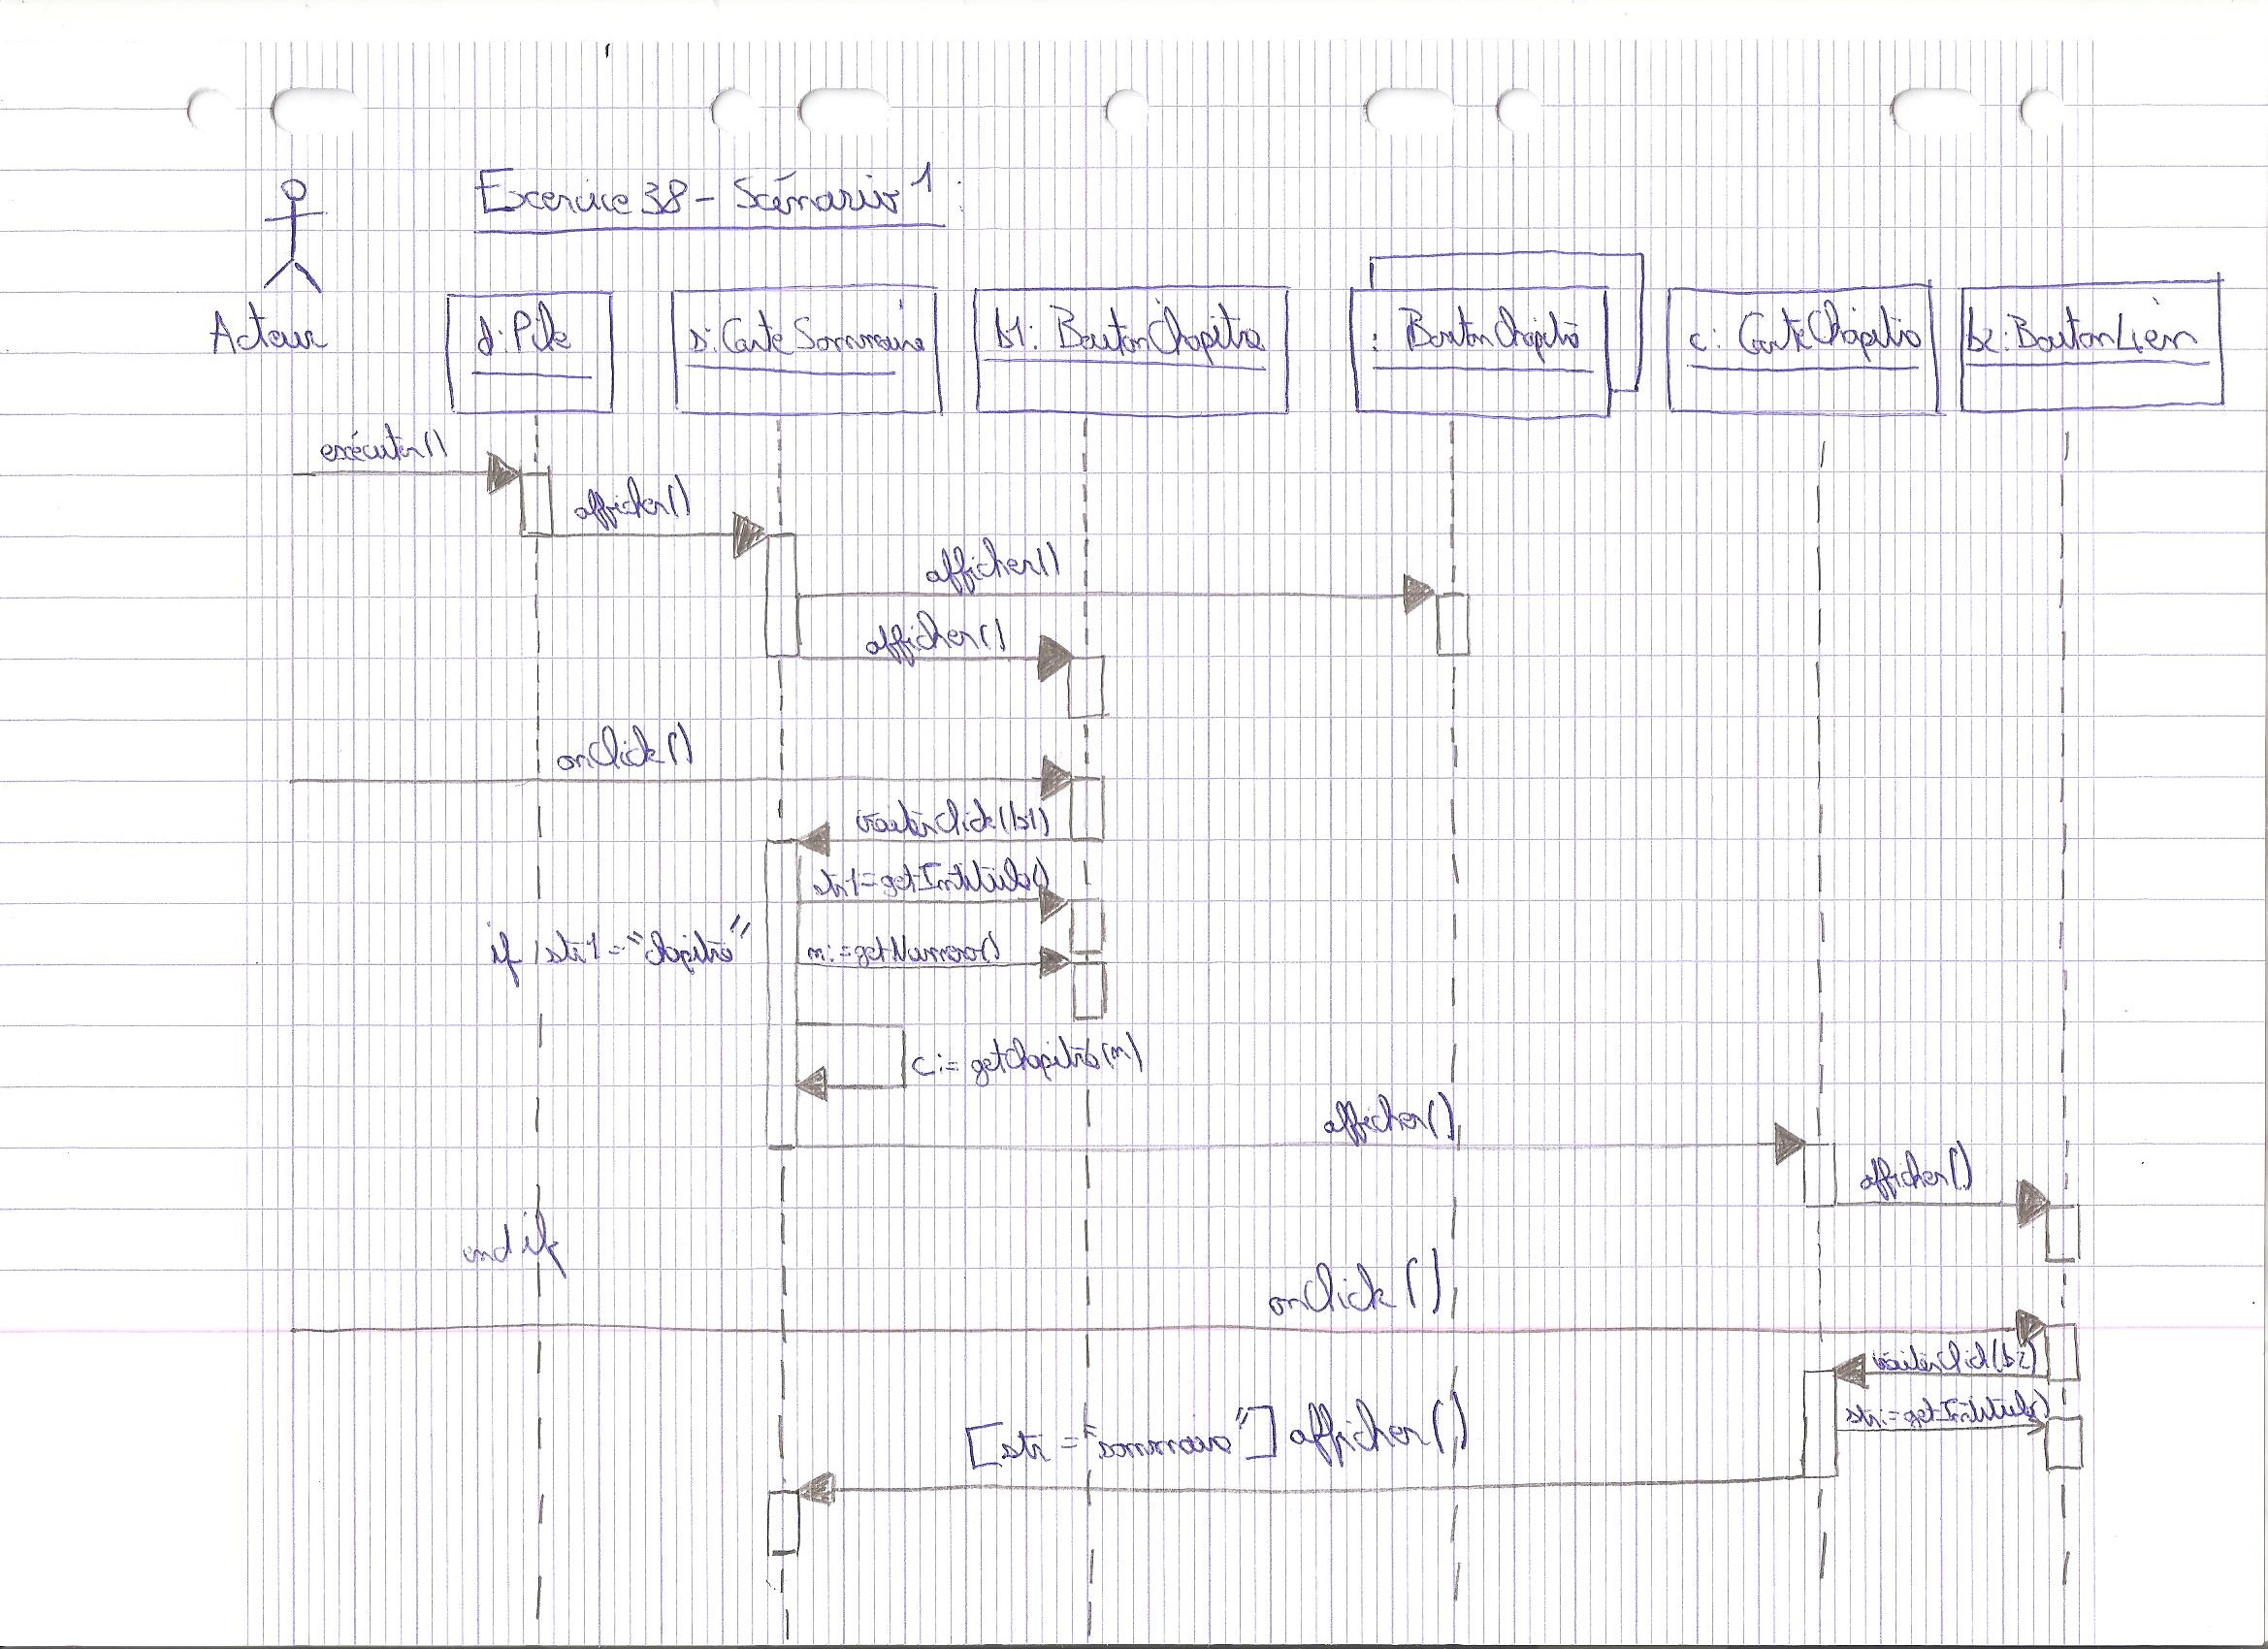 Excercice 38 - Scénario 1 :
Acteur
d: Pile
s: Carte Sommaire
b1: Bouton Chapitre
: Bouton Chapitre
c: Carte Chapitre
b2: Bouton Lien
exécuter()
afficher()
afficher()
afficher()
onClick()
traiterClick(b1)
str1=getIntitulé()
if str1="chapitre"
n:=getNumero()
c:= getChapitre(n)
afficher()
afficher()
end if
onClick()
traiterClick(b2)
str:=getIntitulé()
[str = "sommaire"] afficher()